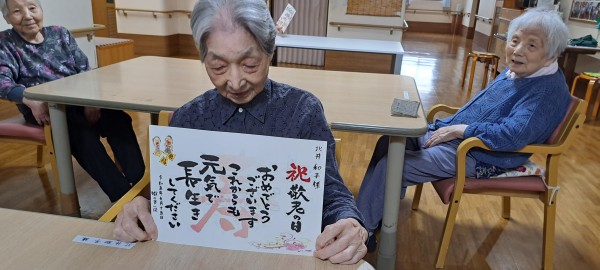 北井 和子様
祝敬老の日
おめでとう
ございます
これからも
元気で
長生き
してください
寿